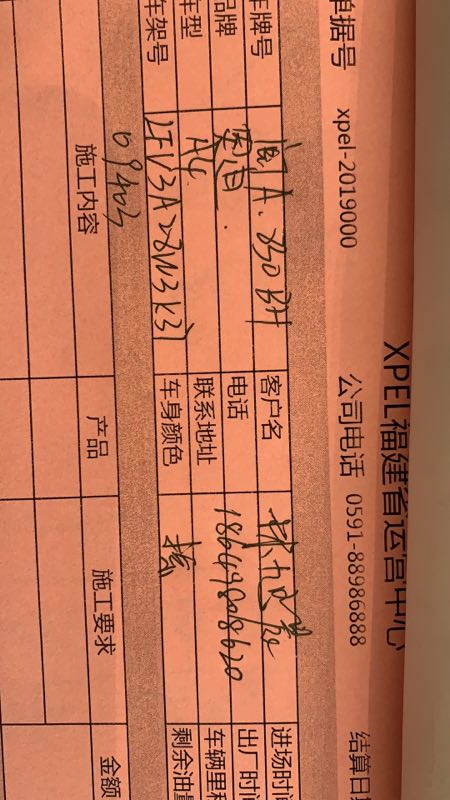 XPEL福建省运营中心
单据号 xpel-2019000 公司电话 0591-88986888 结算日期
车牌号 闽A·830BH 客户名 进场时间
品牌 奥迪 电话 18649808620 出厂时间
车型 A4 联系地址 车辆里程
车架号 LFV3A28W3K3 车身颜色 剩余油量
69403
施工内容 产品 施工要求 金额